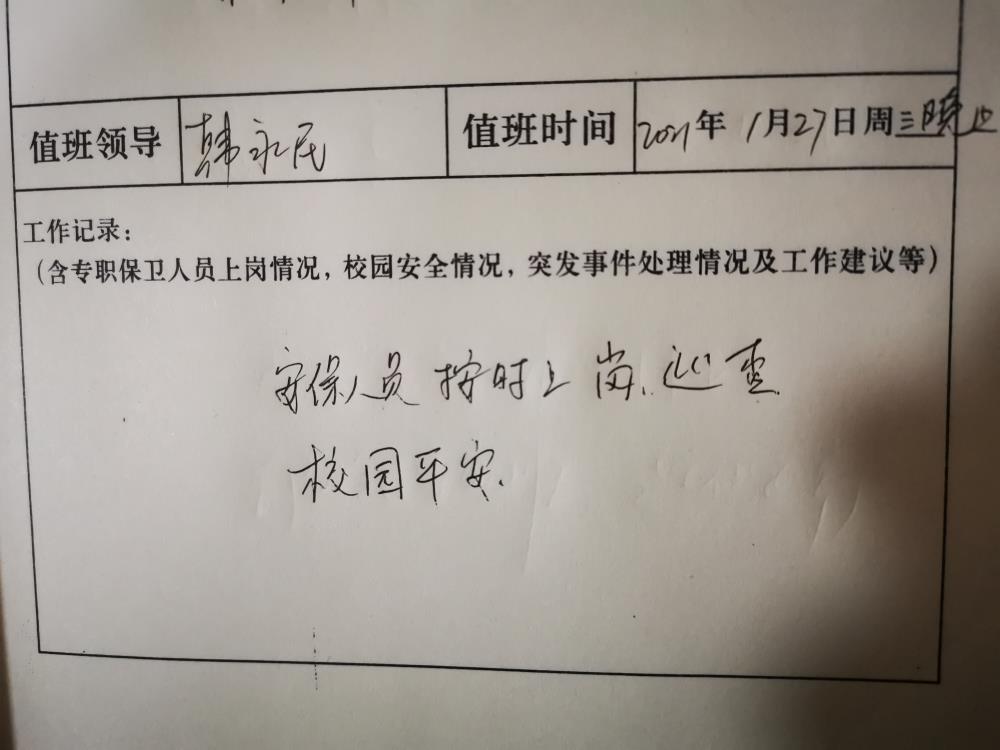 值班领导 韩永民 值班时间 2021年 1月27日周三晚
工作记录:
(含专职保卫人员上岗情况,校园安全情况,突发事件处理情况及工作建议等)
安保人员按时上岗、巡查
校园平安.